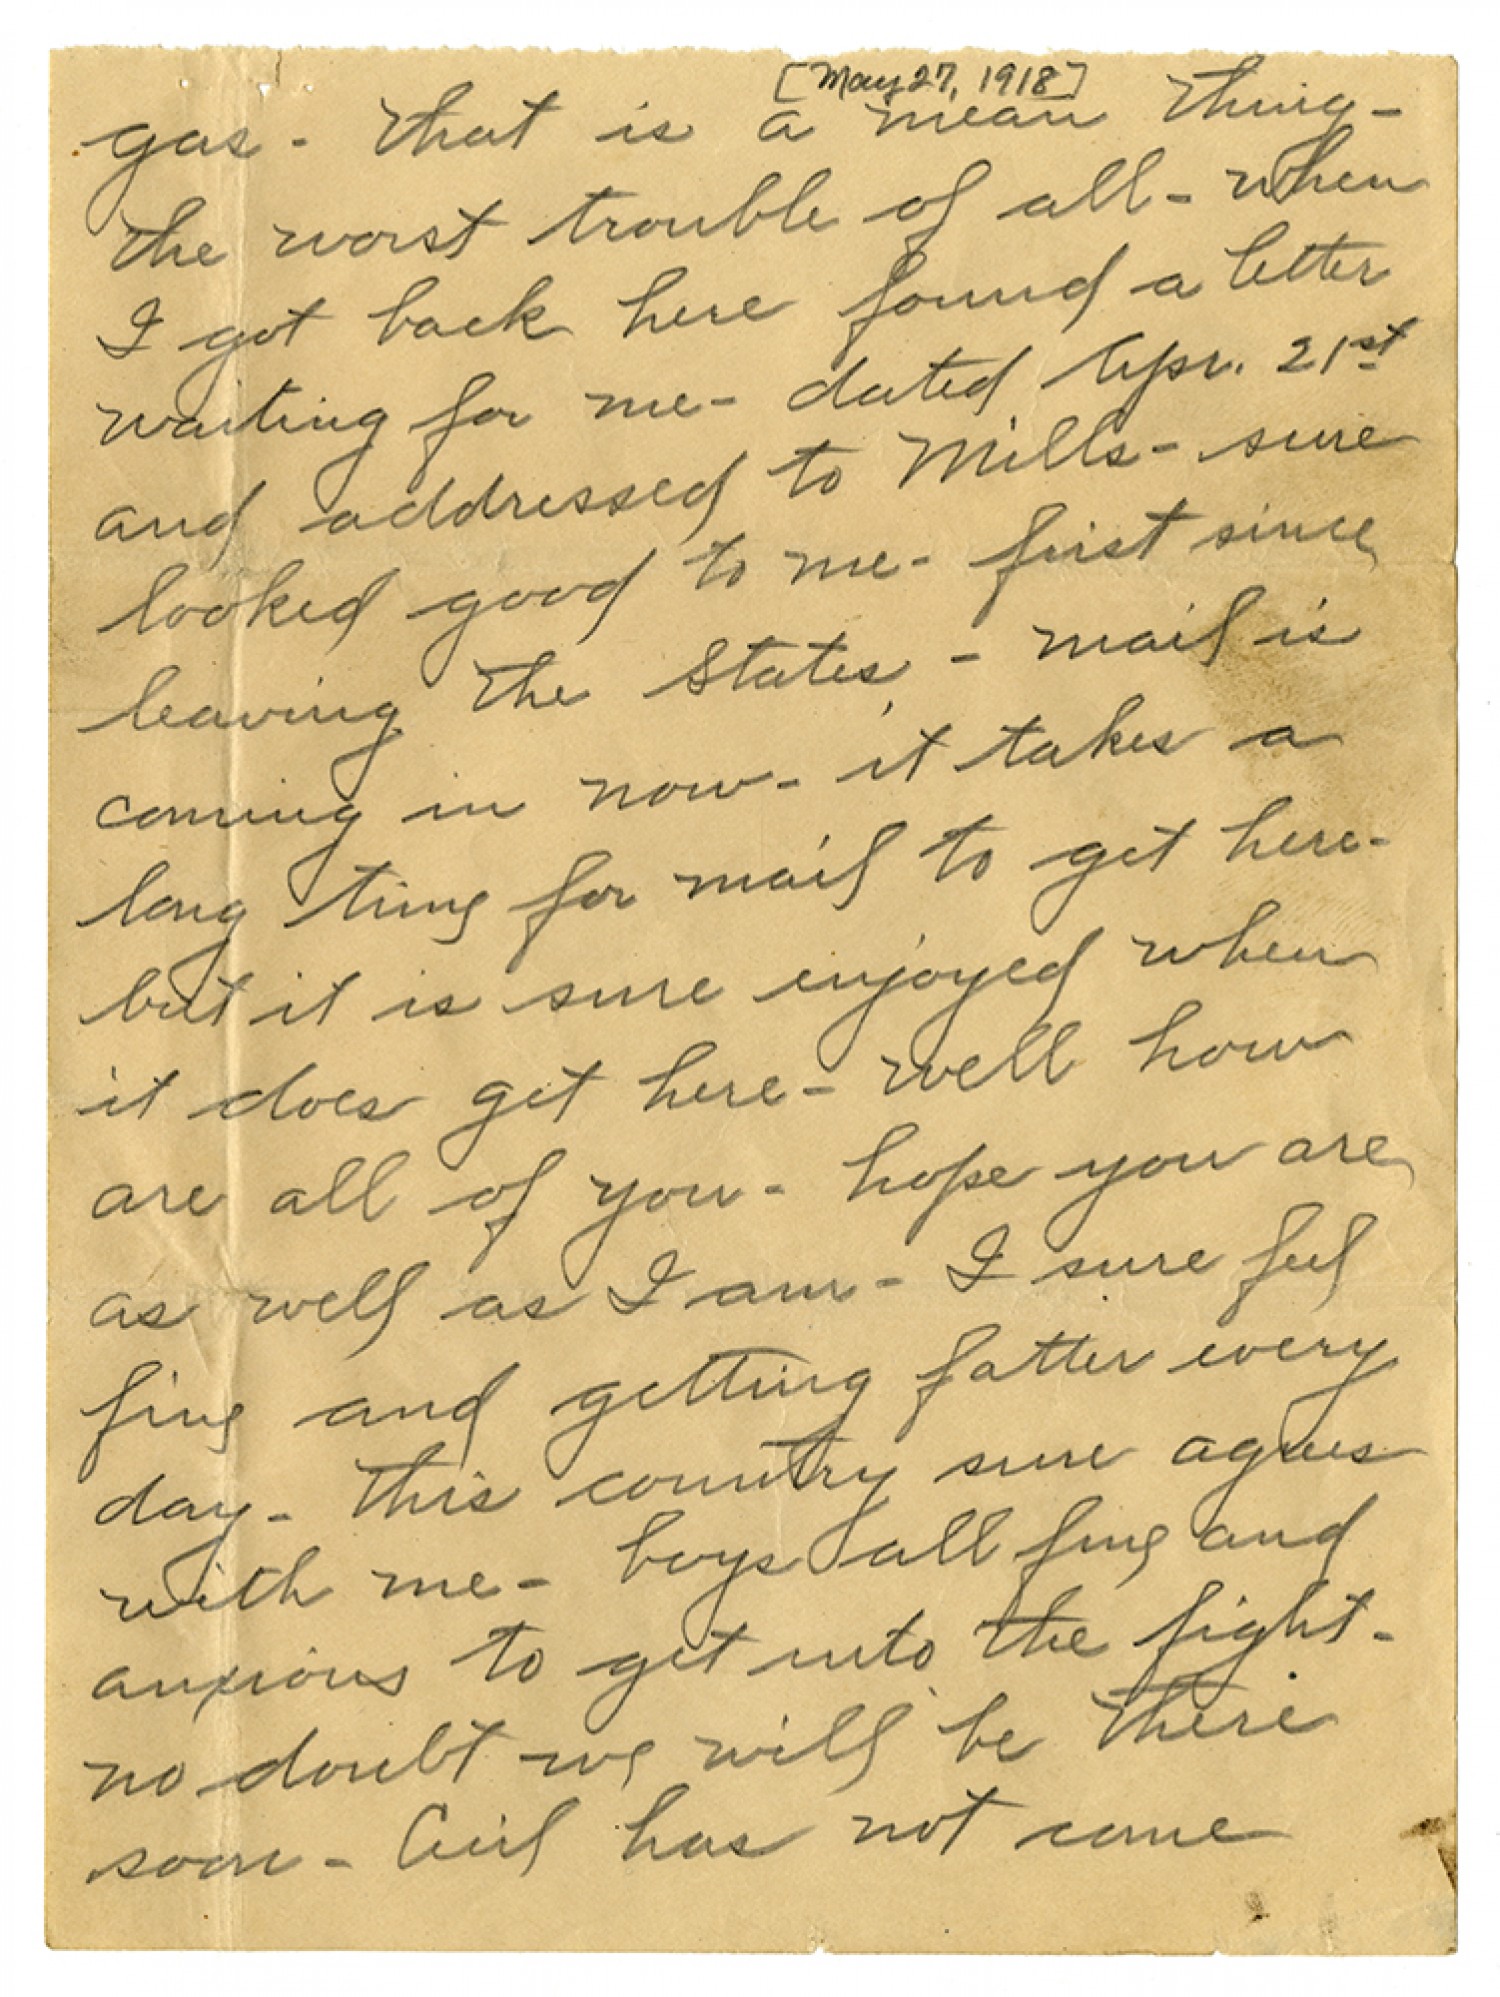 [May 27, 1918]
gas - that is a mean thing -
the worst trouble of all - when
I got back here found a letter
waiting for me - dated Apr. 21st
and addressed to Mills - sure
looked good to me - first since
leaving the States - mail is
coming in now - it takes a
long time for mail to get here -
but it is sure enjoyed when
it does get here - well how
are all of you - hope you are
as well as I am - I sure feel
fine and getting fatter every
day - this country sure agrees
with me - boys all fine and
anxious to get into the fight -
no doubt we will be there
soon - Cecil has not come